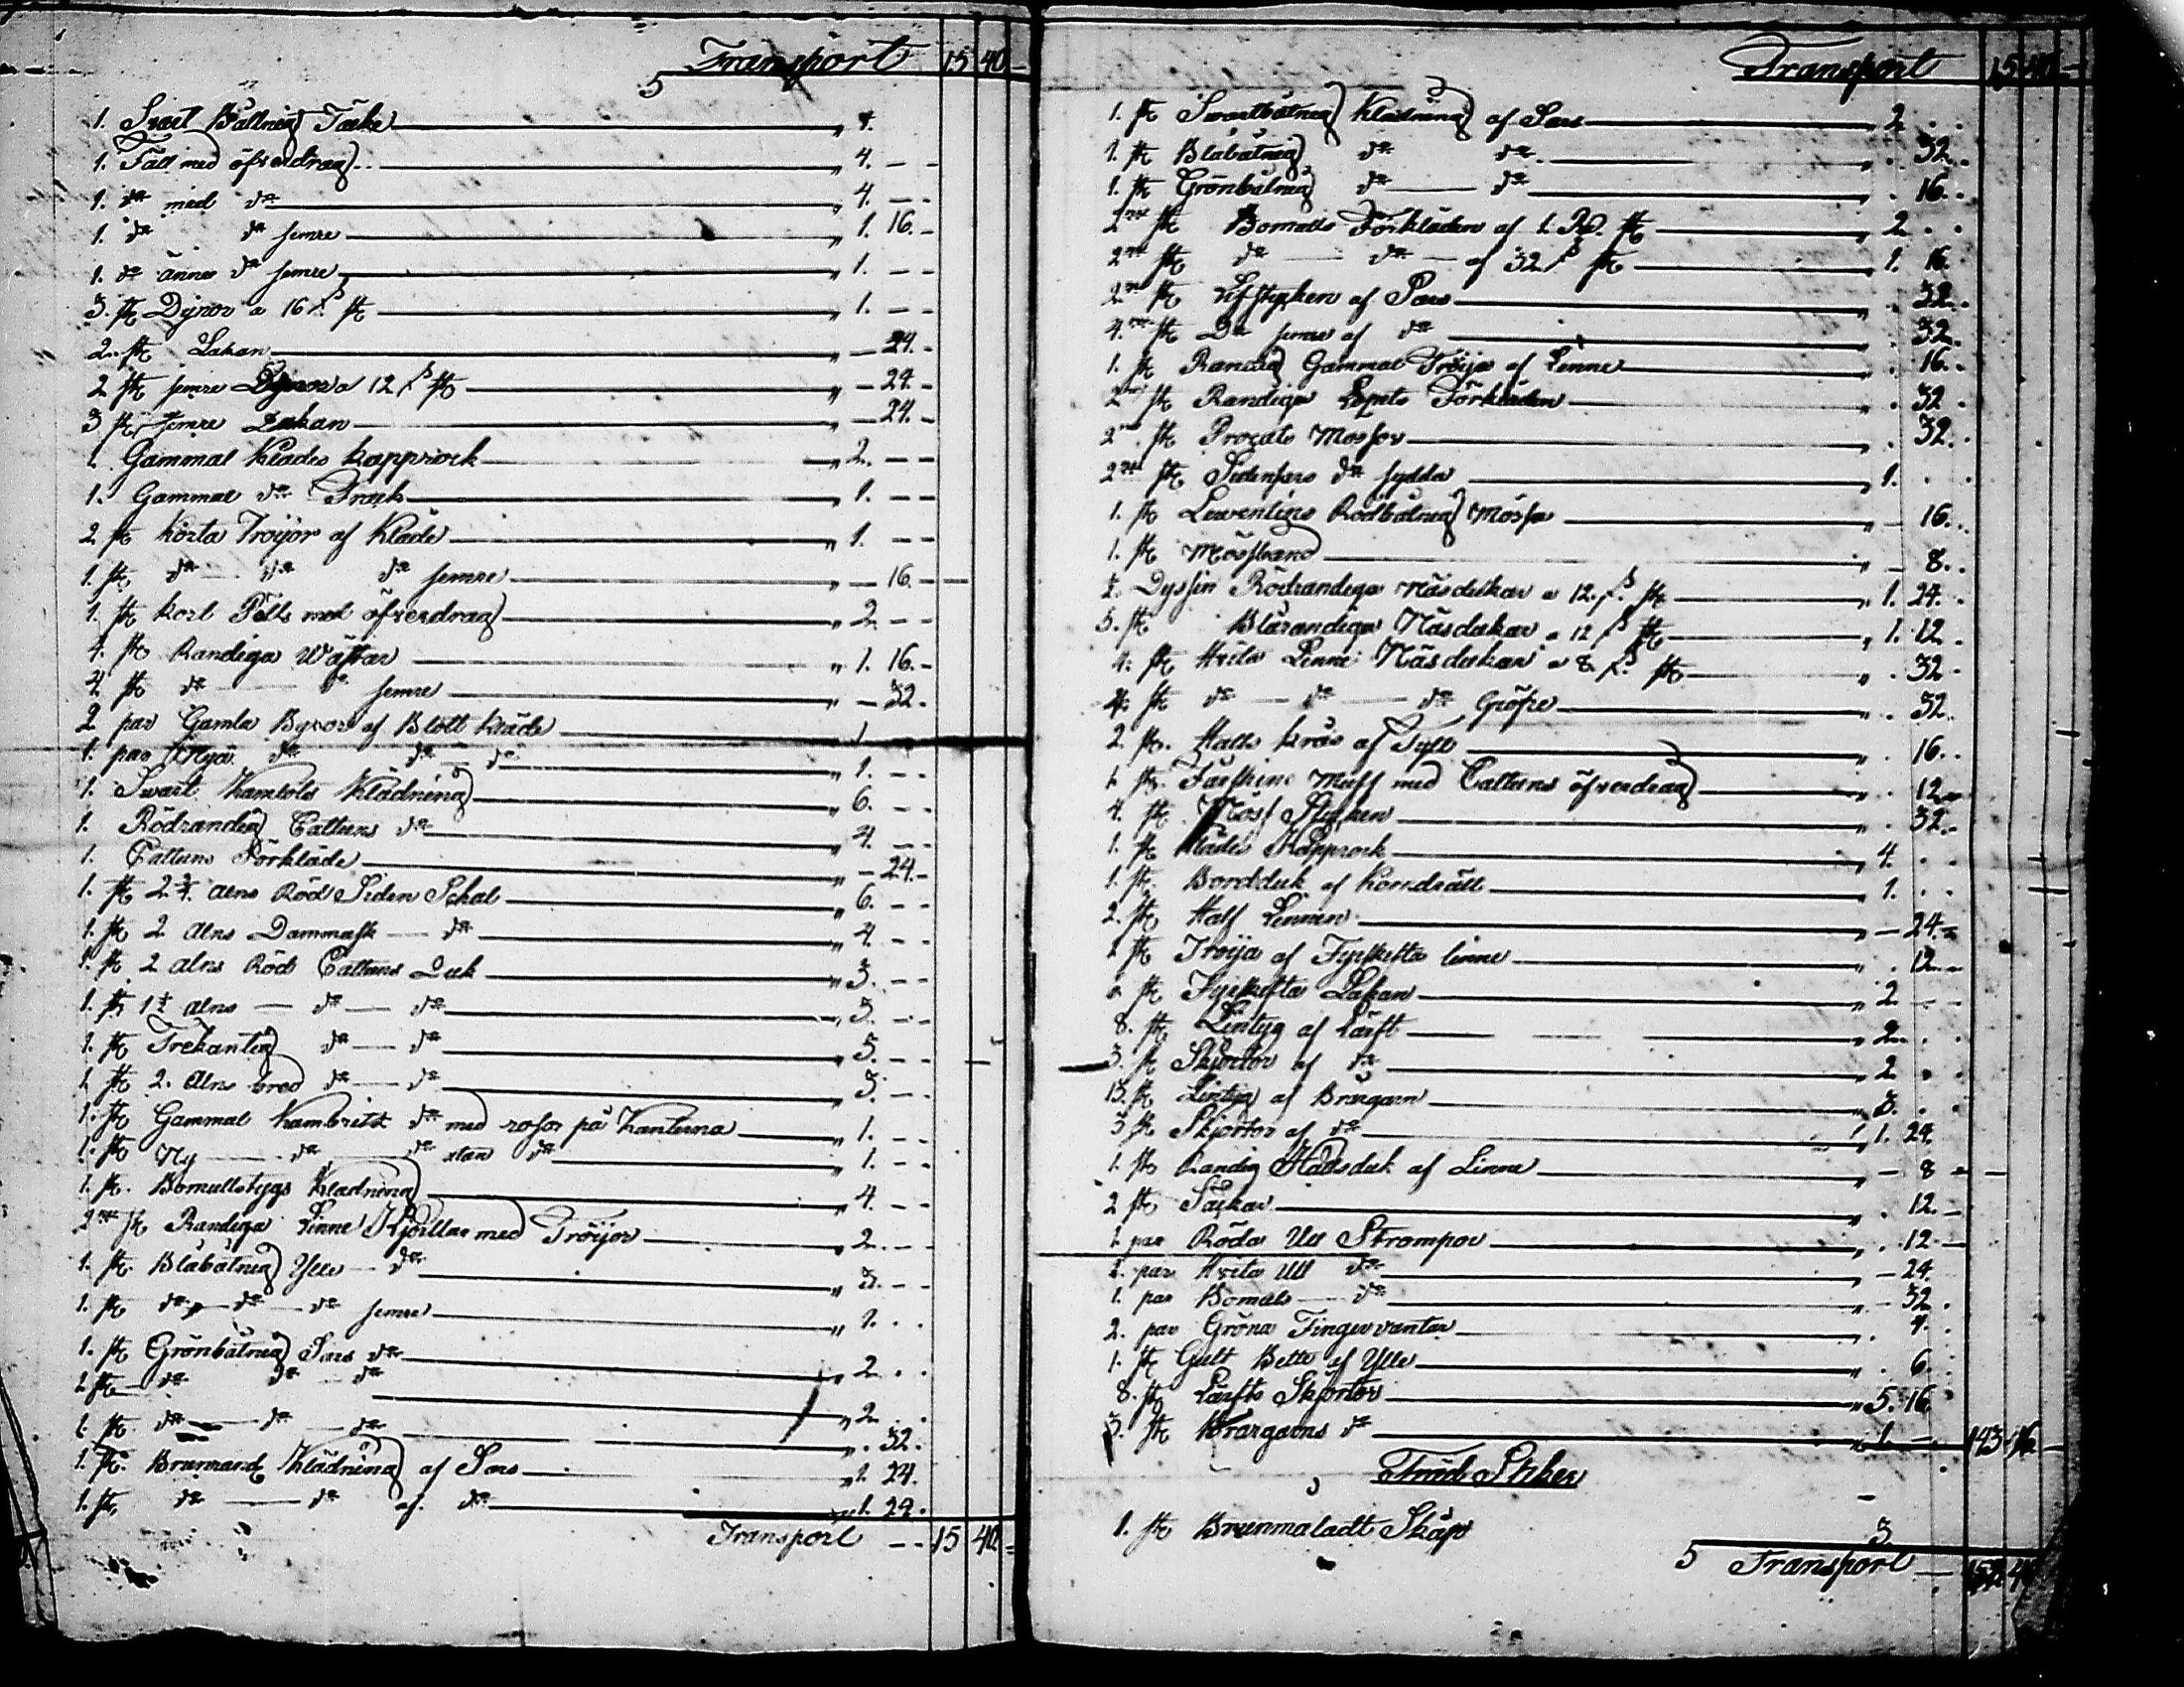 Transport 15 40 -
5
1. Svart Båttnig Täcke „ 4.
1. Fäll med öfverdrag „ 4. - -
1. do med do „ 4. - -
1. do do semre „ 1. 16. -
1. do ännu do semre „ 1. - -
3. st Dynor a 16 s st „ 1. - -
2. st Lakan - 24. -
2 st semre Dynor a 12 s st „ - 24. -
3 st semre Lakan „ - 24. -
1. Gammal Klädes kapprock „ 2. - -
1. Gammal do Frack „ 1. - -
2 st korta Tröijor af Kläde „ 1. - -
1. st do do do semre „ - 16. -
1. st kort Pells med öfverdrag „ 2. - -
4. st Randiga Wästar „ 1. 16. -
4 st do do semre „ - 32. -
2 par Gamla Byxor af Blått kläde 1
1. par Nya do do do „ 1. - -
1. Swart Kamlots Klädning „ 6. - -
1. Rödrandig Cattuns do „ 4. - -
1. Cattuns Förkläde „ - 24. -
1. st 2 3/4 alns Röd Siden Schal „ 6. - -
1. st 2 alns Dammask do „ 4. - -
1. st 2 alns Röd Cattuns Duk „ 3. - -
1. st 1 1/2 alns - do - do „ 3. - -
1. st Trekantig do - do „ 3. - -
1 st 2. Alns bred do - do 3. - -
1. st Gammal Kambriks do med rosor på kanterna „ 1. - -
1. st Ny - do - do utan do „ 1. - -
1. st. Bomullstygs Klädning „ 4. - -
2ne st Randiga Linne Kjortlar med Tröijor „ 2. - -
1. st. Blåbåtnig Ylle - do „ 3. - -
1. st do - do - do semre „ 1. . .
1. st Grönbåtnig Sars do „ 2 . .
1 st do do - do „ 2 . .
1. st do - do - do „ . 32.
1. st. Brunrand Klädning af Sars „ 1. 24.
1. st, do - do af. do „ 1. 24.
Transport - - 15 40 -
Transport 15 40 -
1. st Swartbåtnig Klädning af Sars „ 2 . .
1. st Blåbåtnig do do „ . 32.
1. st Grönbåtnig do - do „ . 16.
2ne st Bomulls Förkläden af 1. Rd. st „ 2 . .
2ne st do - do - af 32 s st „ 1. 16.
2ne st Lifstycken af Sars „ . 32.
4. st Do semre af do „ . 32.
1. st Randig Gammal Tröija af Linne „ . 16.
2ne st Randiga Förkläden „ . 32 .
2ne st Mössor „ . 32.
2ne st Sidensars do sydda „ 1. . .
1. st Lewentins Rödbåtnig Mössa „ - 16.
1. st Mössband „ - 8.
1/2 Dyssin Rödrandiga Näsdukar a 12 s. st „ 1. 24.
5. st Blårandiga Näsdukar a 12 s st „ 1. 12
4. st Hvita Linne Näsdukar a 8 s. st „ . 32
4. st do - do - do Gröfre „ . 32
2 st. Hals krås af Tyll „ . 16.
1. st. Fårskins Muff med Cattuns öfverdrag „ . 12
4. st Möss Stycken „ . 32.
1. st Klädes Kapprock „ 4. . .
1. st. Bordduk af Korndräll „ 1. . .
2. st Half Linnen „ - 24.
1 st Tröija af Fyrskefta linne „ . 12
st Fyrskefta Lakan „ 2
8. st Lintyg af Lärft „ 2 . .
3. st Skjortor af do „ 2 . .
13. st Lintyg af Blårgarn „ 3. . .
3 st Skjortor af do „ 1. 24
1. st Randig Halsduk af Linne - 8
2 st Säckar „ . 12.
1. par Röda Ull Strumpor „ . 12
1. par Hvita Ull do „ - 24
1. par Bomuls do „ - 32.
2. par Gröna Fingervantar „ . 4.
1. st Gult Bälte af Ylle „ . 6.
8. st Lärfts Skjortor „ 5. 16
3. st Blrargarns do „ 1. - 143 16 -
Träd Saker
1. st Brunmåladt Skåp 3
5 Transport